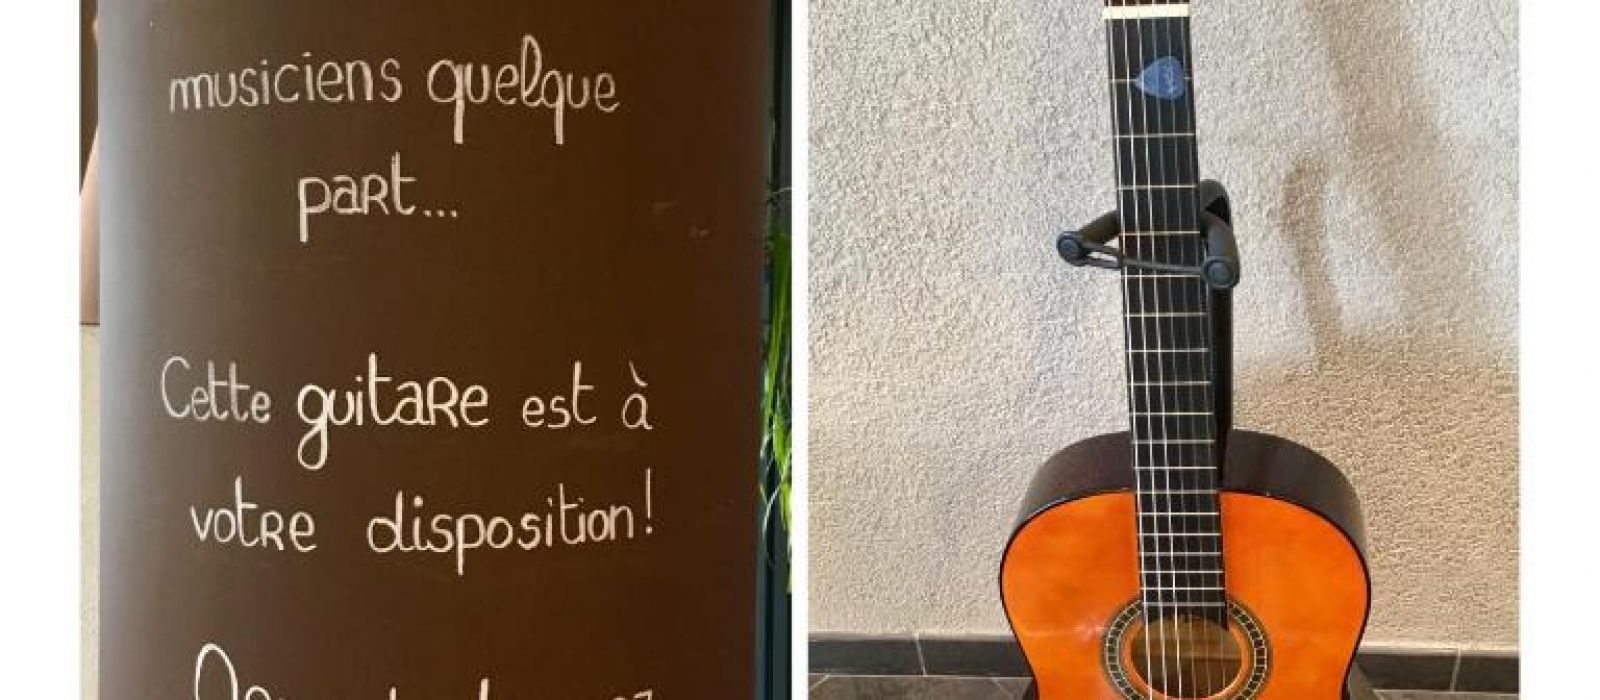 musiciens quelque
part...
Cette guitare est à
votre disposition!